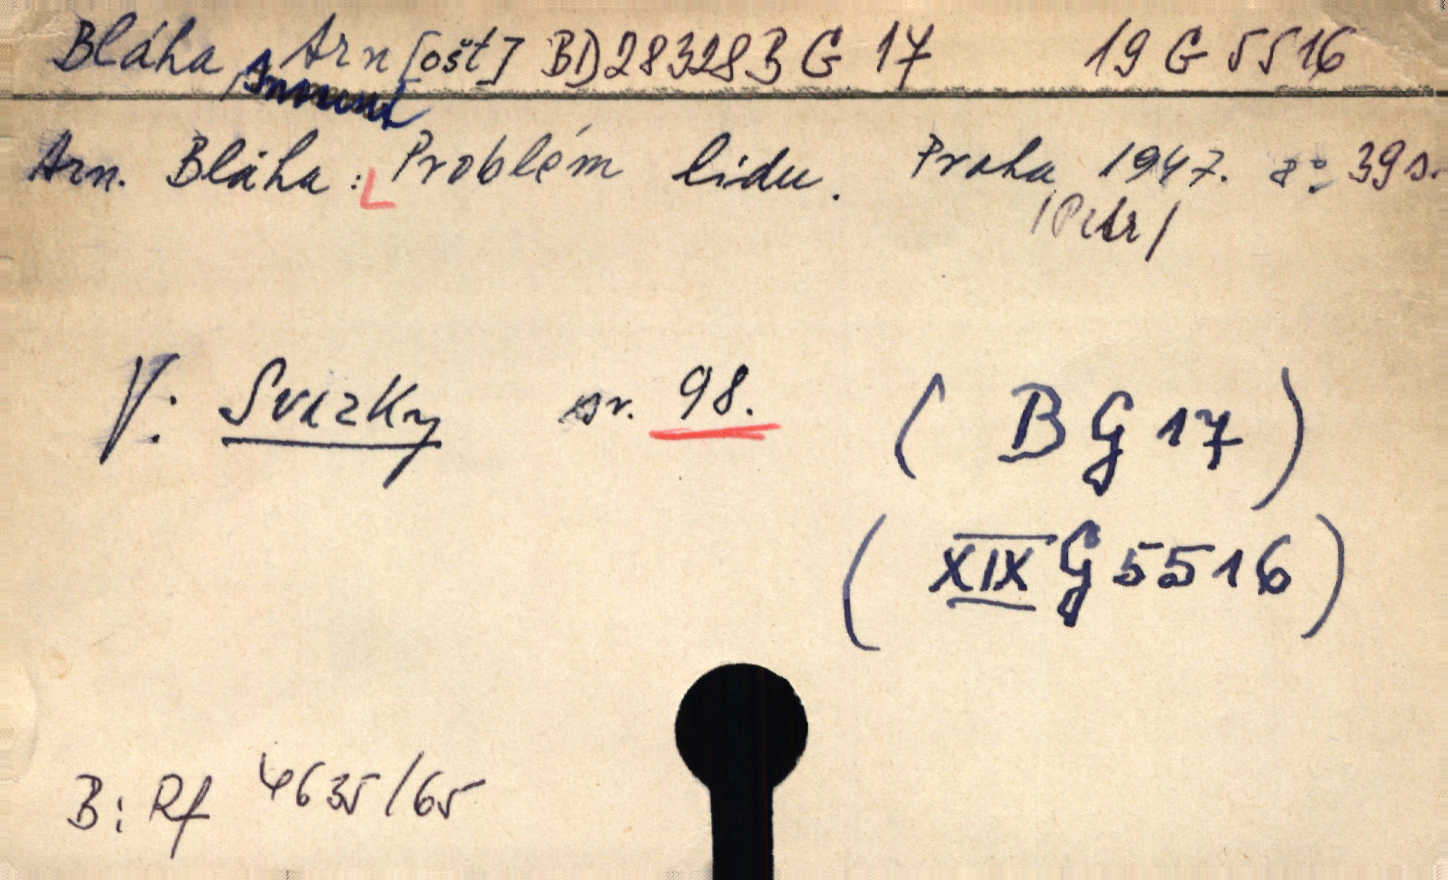 Bláha, Arn[ošt] BD28328 BG 17 19 G 5516
Arn. Bláha: Problém lidu. Praha 1947. 8° 39 s.
/Petr/
V: Svazky sv. 98. (BG 17)
(XIX G 5516)
B: Rf 4635/65